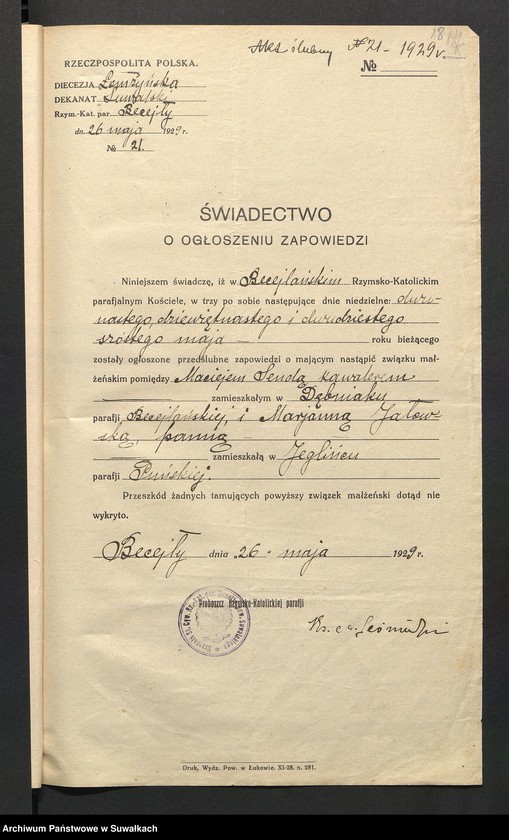 Akt ślubny № 21 - 1929 r.
№
RZECZPOSPOLITA POLSKA.
DIECEZJA Łomżyńska
DEKANAT Suwalski
Rzym.-Kat. par. Becejły
dn. 26 maja 1929 r.
№ 21.
ŚWIADECTWO
O OGŁOSZENIU ZAPOWIEDZI
Niniejszem świadczę, iż w Becejlańskim Rzymsko-Katolickim
parafjalnym Kościele, w trzy po sobie następujące dnie niedzielne: dwu-
nastego, dziewiętnastego i dwudziestego
szóstego maja — roku bieżącego
zostały ogłoszone przedślubne zapowiedzi o mającym nastąpić związku mał-
żeńskim pomiędzy Maciejem Senda, kawalerem
zamieszkałym w Dębniaku
parafji Becejlańskiej, i Marjanną Jatow-
ską, panną —
zamieszkałą w Jeglińcu
parafji Puńskiej.
Przeszkód żadnych tamujących powyższy związek małżeński dotąd nie
wykryto.
Becejły dnia „26" maja 1929 r.
Proboszcz Rzymsko-Katolickiej parafji
Ks.
Druk. Wydz. Pow. w Łukowie. XI-28. n. 281.
Archiwum Państwowe w Suwałkach